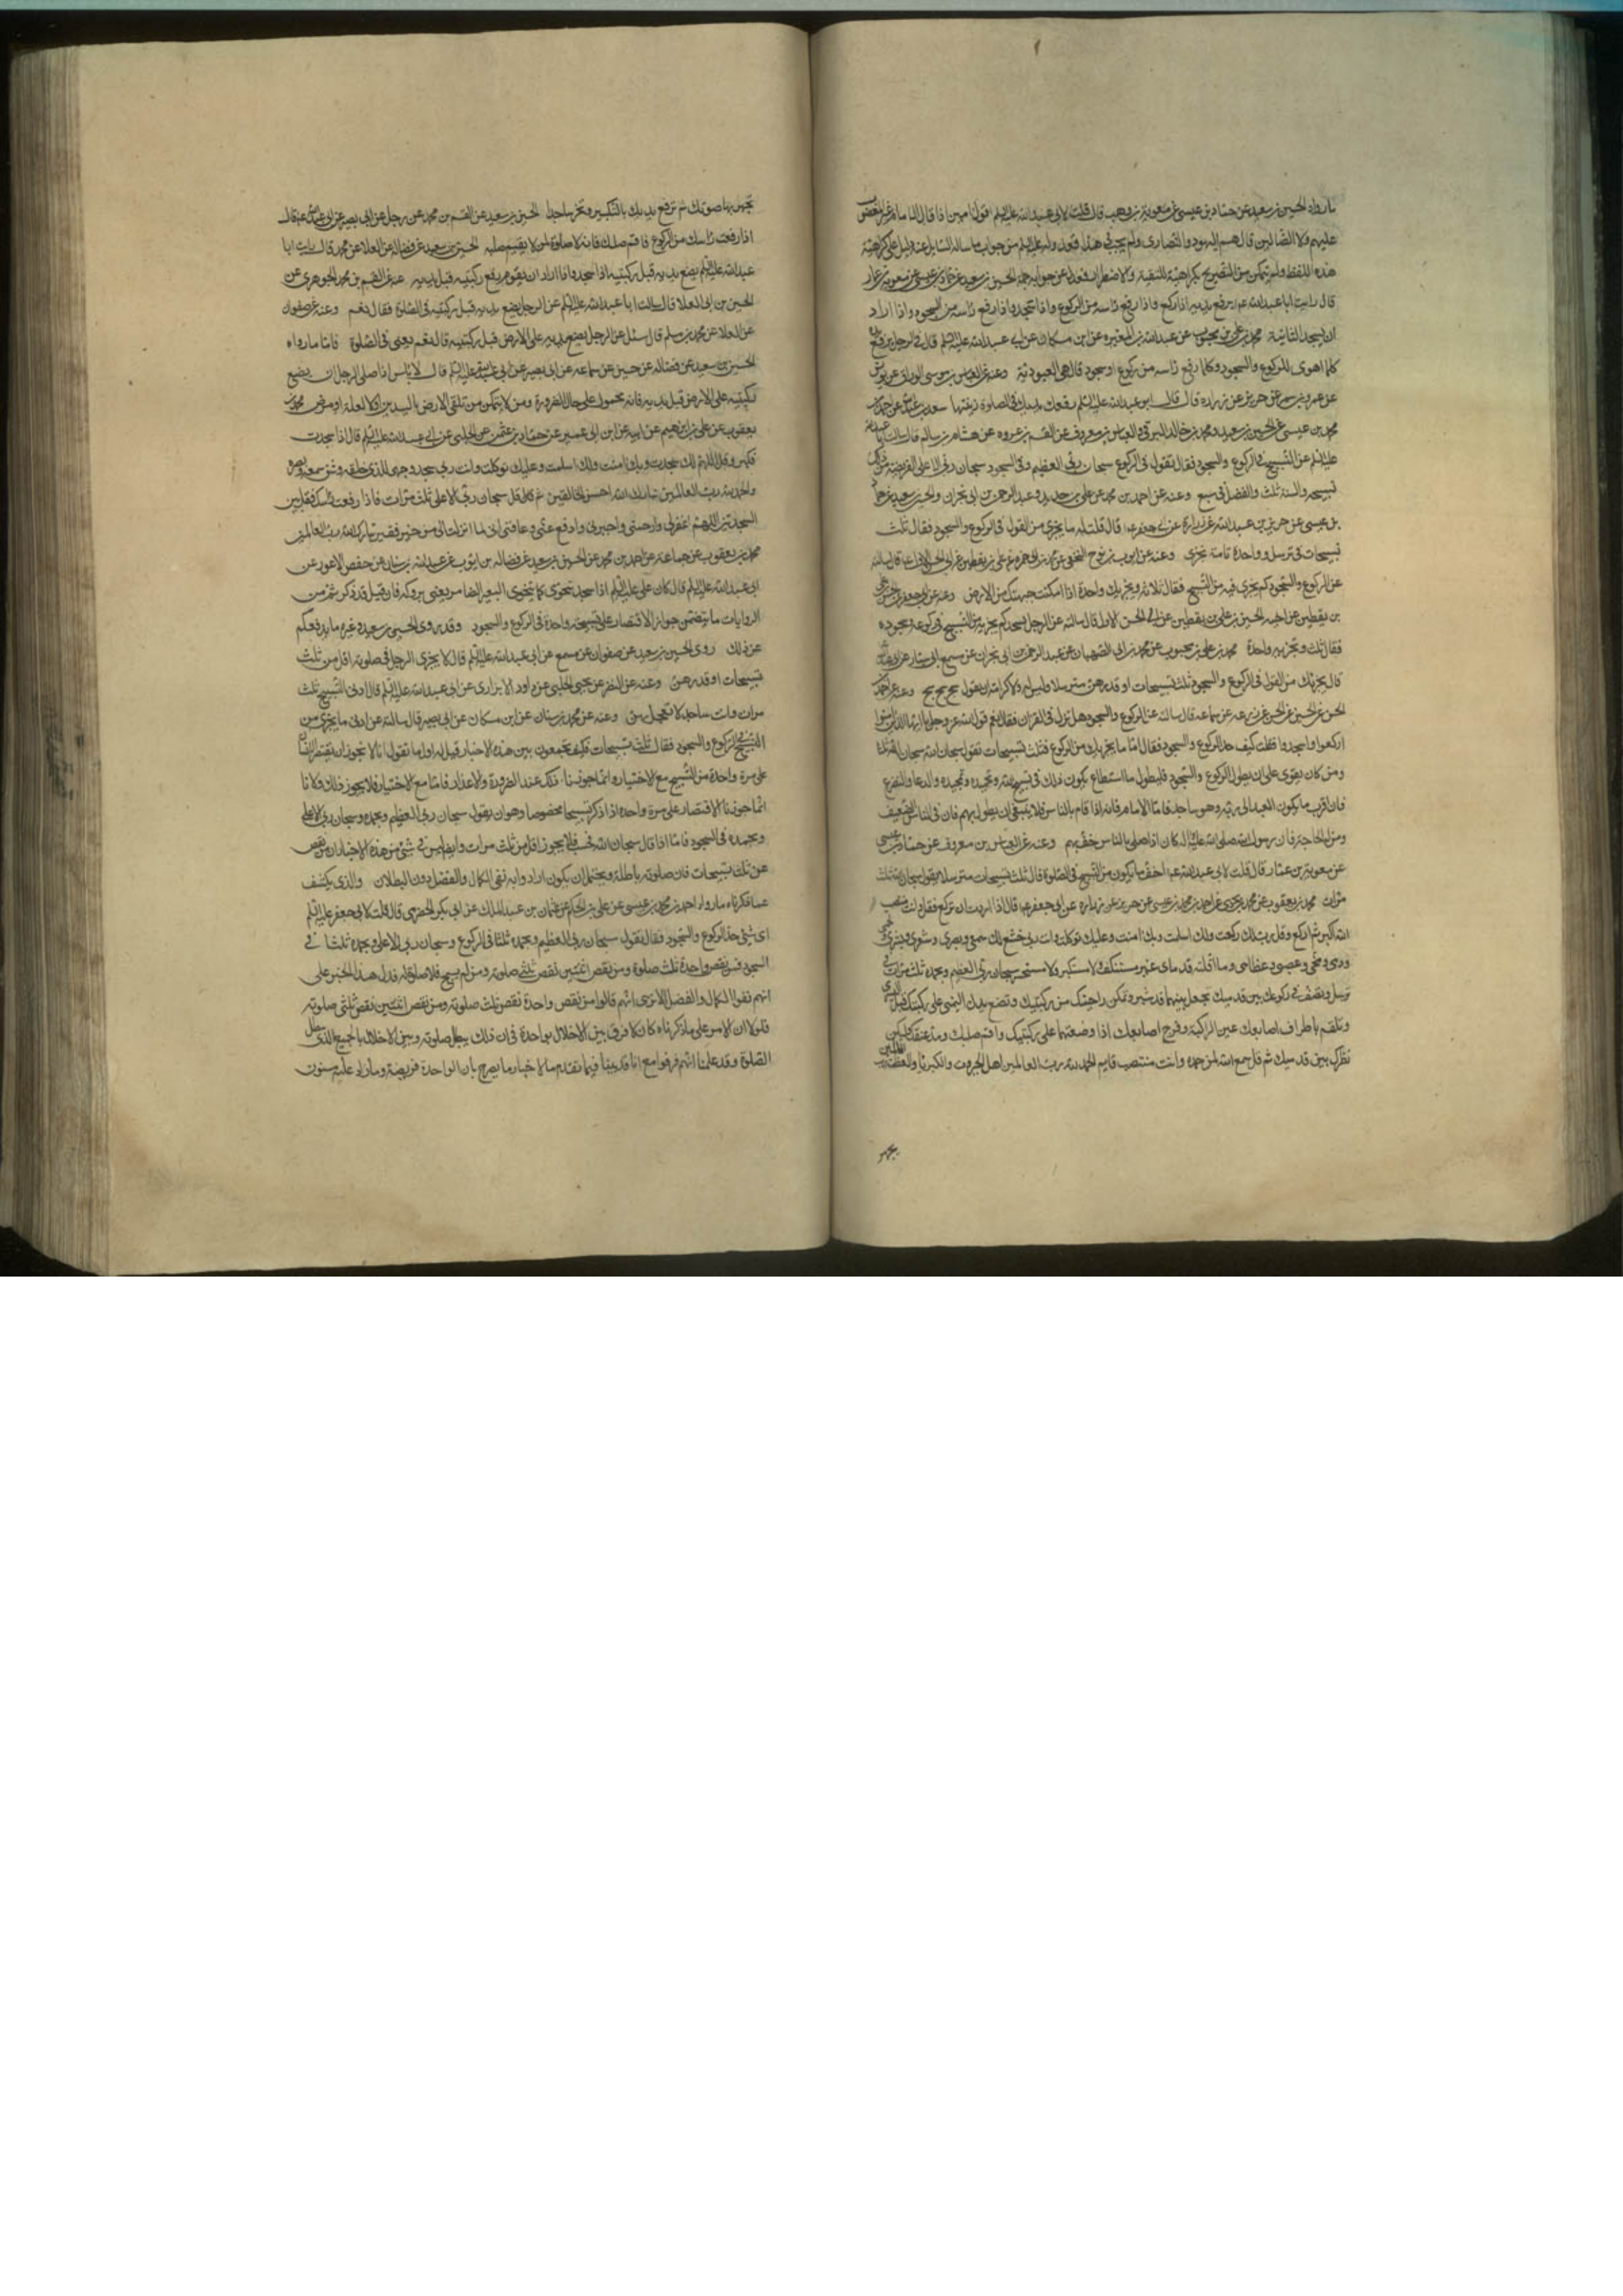 ما رواه الحسين بن سعيد عن حماد بن عيسى عن معوية بن وهب قال قلت لابي عبدالله عليه السلم اقول امين اذا قال الامام غير المغضوب
عليهم ولا الضالين قال هم اليهود والنصارى ولم يجب في هذا فعدوله عليه السلم عن جواب ما ساله السايل عنه دليل على كراهية
هذه اللفظة ولم يتمكن من التصريح بكراهية للتقية والاضطرار فعدل عن جوابه جملة الحسين بن سعيد عن حماد بن عيسى عن معوية بن عمار
قال رايت ابا عبدالله ع يرفع يديه اذا ركع واذا رفع راسه من الركوع واذا سجد واذا رفع راسه من السجود واذا اراد
ان يسجد الثانية محمد بن علي بن محبوب عن عبدالله بن المغيره عن ابن مسكان عن ابي عبدالله عليه السلم قال في الرجل يرفع يده
كلما اهوى للركوع والسجود وكلما رفع راسه من ركوع او سجود قال هي العبودية وعنه عن العباس بن موسى الوراق عن يونس
عن عمرو بن شمر عن حريز عن زراره قال قال ابو عبدالله عليه السلم رفعك يديك في الصلوة زينتها سعد بن عبدالله عن احمد بن
محمد بن عيسى عن الحسين بن سعيد ومحمد بن خالد البرقي والعباس بن معروف عن القسم بن عروه عن هشام بن سالم قال سالت ابا عبدالله
عليه السلم عن التسبيح في الركوع والسجود فقال تقول في الركوع سبحان ربي العظيم وفي السجود سبحان ربي الاعلى الفريضة من ذلك
تسبيحه والسنه ثلث والفضل في سبع وعنه عن احمد بن محمد عن علي بن حديد وعبد الرحمن بن ابي نجران والحسين بن سعيد عن حماد
بن عيسى عن حريز بن عبدالله عن زرارة عن ابي جعفر ع قال قلت له ما يجزي من القول في الركوع والسجود فقال ثلث
تسبيحات في ترسل وواحدة تامة تجزي وعنه عن ايوب بن نوح النخعي عن محمد بن ابي حمزه عن علي بن يقطين عن ابي الحسن الاول ع قال سالته
عن الركوع والسجود كم يجزي فيه من التسبيح فقال ثلاثة ويجزيك واحدة اذا امكنت جبهتك من الارض وعنه عن ابي جعفر عن الحسن بن علي
بن يقطين عن اخيه الحسين بن علي بن يقطين عن ابي الحسن الاول قال سالته عن الرجل يسجد كم يجزيه من التسبيح في ركوعه وسجوده
فقال ثلث وتجزيه واحدة محمد بن علي بن محبوب عن محمد بن ابي الصهبان عن عبد الرحمن بن ابي نجران عن مسمع ابي سيار عن ابي عبدالله
قال يجزيك من القول في الركوع والسجود ثلث تسبيحات او قدرهن مترسلا وليس له ولا كرامة ان يقول سبح سبح سبح وعنه عن احمد بن
الحسن عن الحسين عن الحسن عن زرعه عن سماعه قال سالته عن الركوع والسجود هل نزل في القران فقال نعم قول الله عز وجل يا ايها الذين امنوا
اركعوا واسجدوا فقلت كيف حد الركوع والسجود فقال اما ما يجزيك من الركوع فثلث تسبيحات تقول سبحان الله سبحان الله ثلثا
ومن كان يقوى على ان يطول الركوع والسجود فليطول ما استطاع يكون ذلك في تسبيح الله وتحميده وتمجيده والدعا والتضرع
فان اقرب ما يكون العبد الى ربه وهو ساجد فاما الامام فانه اذا قام بالناس فلا ينبغي ان يطول بهم فان في الناس الضعيف
ومن له الحاجة فان رسول الله صلى الله عليه واله كان اذا صلى بالناس خف بهم وعنه عن العباس بن معروف عن حماد بن عيسى
عن معوية بن عمار قال قلت لابي عبدالله ع اخف ما يكون من التسبيح في الصلوة قال ثلث تسبيحات مترسلا يقول سبحان الله ثلث
مرات محمد بن يعقوب عن محمد بن يحيى عن احمد بن محمد بن عيسى عن حريز عن زراره عن ابي جعفر ع قال اذا اردت ان تركع فقل وانت منتصب
الله اكبر ثم اركع وقل رب لك ركعت ولك اسلمت وبك امنت وعليك توكلت وانت ربي خشع لك سمعي وبصري وشعري وبشري ولحمي
ودمي ومخي وعصبي وعظامي وما اقلته قدماي غير مستنكف ولا مستكبر ولا مستحسر سبحان ربي العظيم وبحمده ثلث مرات في
ترسل وتصف في ركوعك بين قدميك تجعل بينهما قدر شبر وتمكن راحتيك من ركبتيك وتضع يدك اليمنى على ركبتك قبل اليسرى
وتلقم باطراف اصابعك عين الركبة وفرج اصابعك اذا وضعتها على ركبتيك واقم صلبك ومد عنقك وليكن
نظرك بين قدميك ثم قل سمع الله لمن حمده وانت منتصب قايم الحمد لله رب العالمين اهل الجبروت والكبريا والعظمة لله رب العالمين
تجهر
تجهر بها صوتك ثم ترفع يديك بالتكبير وتخر ساجدا الحسين بن سعيد عن القسم بن محمد عن رجل عن ابي بصير عن ابي عبدالله ع قال
اذا رفعت راسك من الركوع فاقم صلبك فانه لا صلوة لمن لا يقيم صلبه الحسين بن سعيد عن فضاله عن العلا عن محمد قال رايت ابا
عبدالله عليه السلم يضع يديه قبل ركبتيه اذا سجد واذا اراد ان يقوم رفع ركبتيه قبل يديه عنه عن القسم بن محمد الجوهري عن
الحسين بن ابي العلا قال سالت ابا عبدالله عليه السلم عن الرجل يضع يديه قبل ركبتيه في الصلوة فقال نعم وعنه عن صفوان
عن العلا عن محمد بن مسلم قال سئل عن الرجل يضع يديه على الارض قبل ركبتيه قال نعم يعني في الصلوة فاما ما رواه
الحسين بن سعيد عن فضاله عن حسين عن سماعه عن ابي بصير عن ابي عبدالله عليه السلم قال لا باس اذا صلى الرجل ان يضع
ركبتيه على الارض قبل يديه فانه محمول على حال الضرورة ومن لا يتمكن من تلقى الارض باليدين اولا لعلة او مرض محمد بن
يعقوب عن علي بن ابراهيم عن ابيه عن ابن ابي عمير عن حماد بن عثمن عن الحلبي عن ابي عبدالله عليه السلم قال اذا سجدت
فكبر وقل اللهم لك سجدت وبك امنت ولك اسلمت وعليك توكلت وانت ربي سجد وجهي للذي خلقه وشق سمعه وبصره
والحمد لله رب العالمين تبارك الله احسن الخالقين ثم قل سبحان ربي الاعلى ثلث مرات فاذا رفعت راسك فقل بين
السجدتين اللهم اغفر لي وارحمني واجبرني وادفع عني وعافني اني لما انزلت الي من خير فقير تبارك الله رب العالمين
محمد بن يعقوب عن جماعة عن احمد بن محمد عن الحسين بن سعيد عن فضاله بن ايوب عن عبدالله بن سنان عن حفص الاعور عن
ابي عبدالله عليه السلم قال كان علي عليه السلم اذا سجد يتخوى كما يتخوى البعير الضامر يعني بروكه فان قيل قد ذكرتم من
الروايات ما يتضمن جواز الاقتصار على تسبيحة واحدة في الركوع والسجود وقد روى الحسين بن سعيد وغيره ما يدفعكم
عن ذلك روى الحسين بن سعيد عن صفوان عن مسمع عن ابي عبدالله عليه السلم قال لا يجزي الرجل في صلوته اقل من ثلث
تسبيحات او قدرهن وعنه عن النضر عن يحيى الحلبي عن داود الابزاري عن ابي عبدالله عليه السلم قال ادنى التسبيح ثلث
مرات وانت ساجد لا تعجل بهن وعنه عن محمد بن سنان عن ابن مسكان عن ابي بصير قال سالته عن ادنى ما يجزي من
التسبيح في الركوع والسجود فقال ثلث تسبيحات فكيف تجمعون بين هذه الاخبار قيل له اول ما نقول انا لا نجوز ان يقتصر الانسان
على مرة واحدة من التسبيح مع الاختيار وانما جوزنا ذلك عند الضرورة والاعذار فاما مع الاختيار فلا يجوز ذلك ولانا
انما جوزنا الاقتصار على مرة واحده اذا ذكر تسبيحا مخصوصا وهو ان يقول سبحان ربي العظيم وبحمده وسبحان ربي الاعلى
وبحمده في السجود فاما اذا قال سبحان الله فحسب فلا يجوز اقل من ثلث مرات وايضا ليس في شئ من هذه الاخبار ان من نقص
عن ثلث تسبيحات فان صلوته باطلة ويحتمل ان يكون ارادوا به نفي الكمال والفضل دون البطلان والذي يكشف
عما ذكرناه ما رواه احمد بن محمد بن عيسى عن علي بن الحكم عن عثمان بن عبد الملك عن ابي بكر الحضرمي قال قلت لابي جعفر عليه السلم
اي شئ حد الركوع والسجود فقال تقول سبحان ربي العظيم وبحمده ثلثا في الركوع وسبحان ربي الاعلى وبحمده ثلثا في
السجود فمن نقص واحدة ثلث صلوة ومن نقص اثنتين نقص ثلثي صلوته ومن لم يسبح فلا صلوة له فدل هذا الخبر على
انهم نفوا الكمال والفضل الا ترى انهم قالوا من نقص واحدة نقص ثلث صلوته ومن نقص اثنتين نقص ثلثي صلوته
فلولا ان الامر على ما ذكرناه كان لا فرق بين الاخلال بواحدة في ان ذلك يبطل صلوته وبين الاخلال بالجميع الذي يبطل
الصلوة وقد علمنا انهم فرقوا مع انا قد بينا فيما تقدم من الاخبار ما يصرح بان الواحدة فريضة وما زاد عليه مسنون